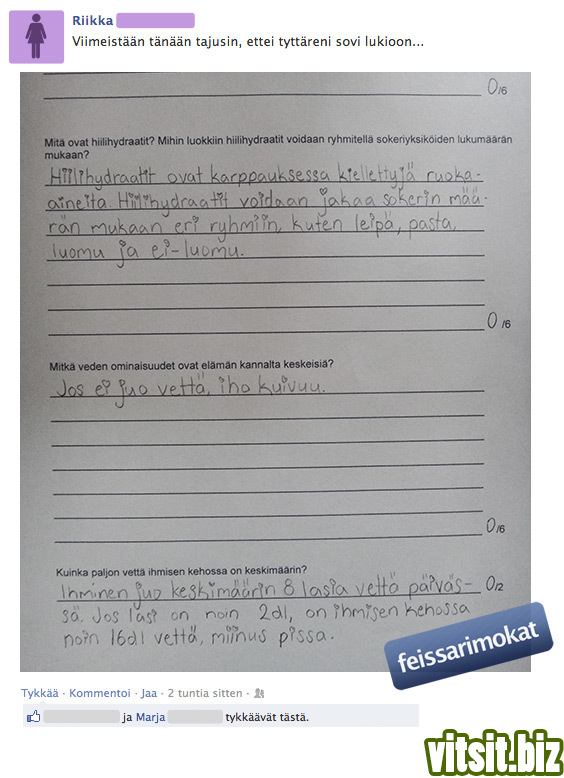 Riikka
Viimeistään tänään tajusin, ettei tyttäreni sovi lukioon...
0/6
Mitä ovat hiilihydraatit? Mihin luokkiin hiilihydraatit voidaan ryhmitellä sokeriyksiköiden lukumäärän
mukaan?
Hiilihydraatit ovat karppauksessa kiellettyjä ruoka-
aineita. Hiilihydraatit voidaan jakaa sokerin mää-
rän mukaan eri ryhmiin, kuten leipä, pasta,
luomu ja ei-luomu.
0/6
Mitkä veden ominaisuudet ovat elämän kannalta keskeisiä?
Jos ei juo vettä, iho kuivuu.
0/6
Kuinka paljon vettä ihmisen kehossa on keskimäärin?
Ihminen juo keskimäärin 8 lasia vettä päiväs-
0/2
sä. Jos lasi on noin 2dl, on ihmisen kehossa
noin 16dl vettä, miinus pissa.
feissarimokat
Tykkää · Kommentoi · Jaa · 2 tuntia sitten ·
ja Marja tykkäävät tästä.
vitsit.biz